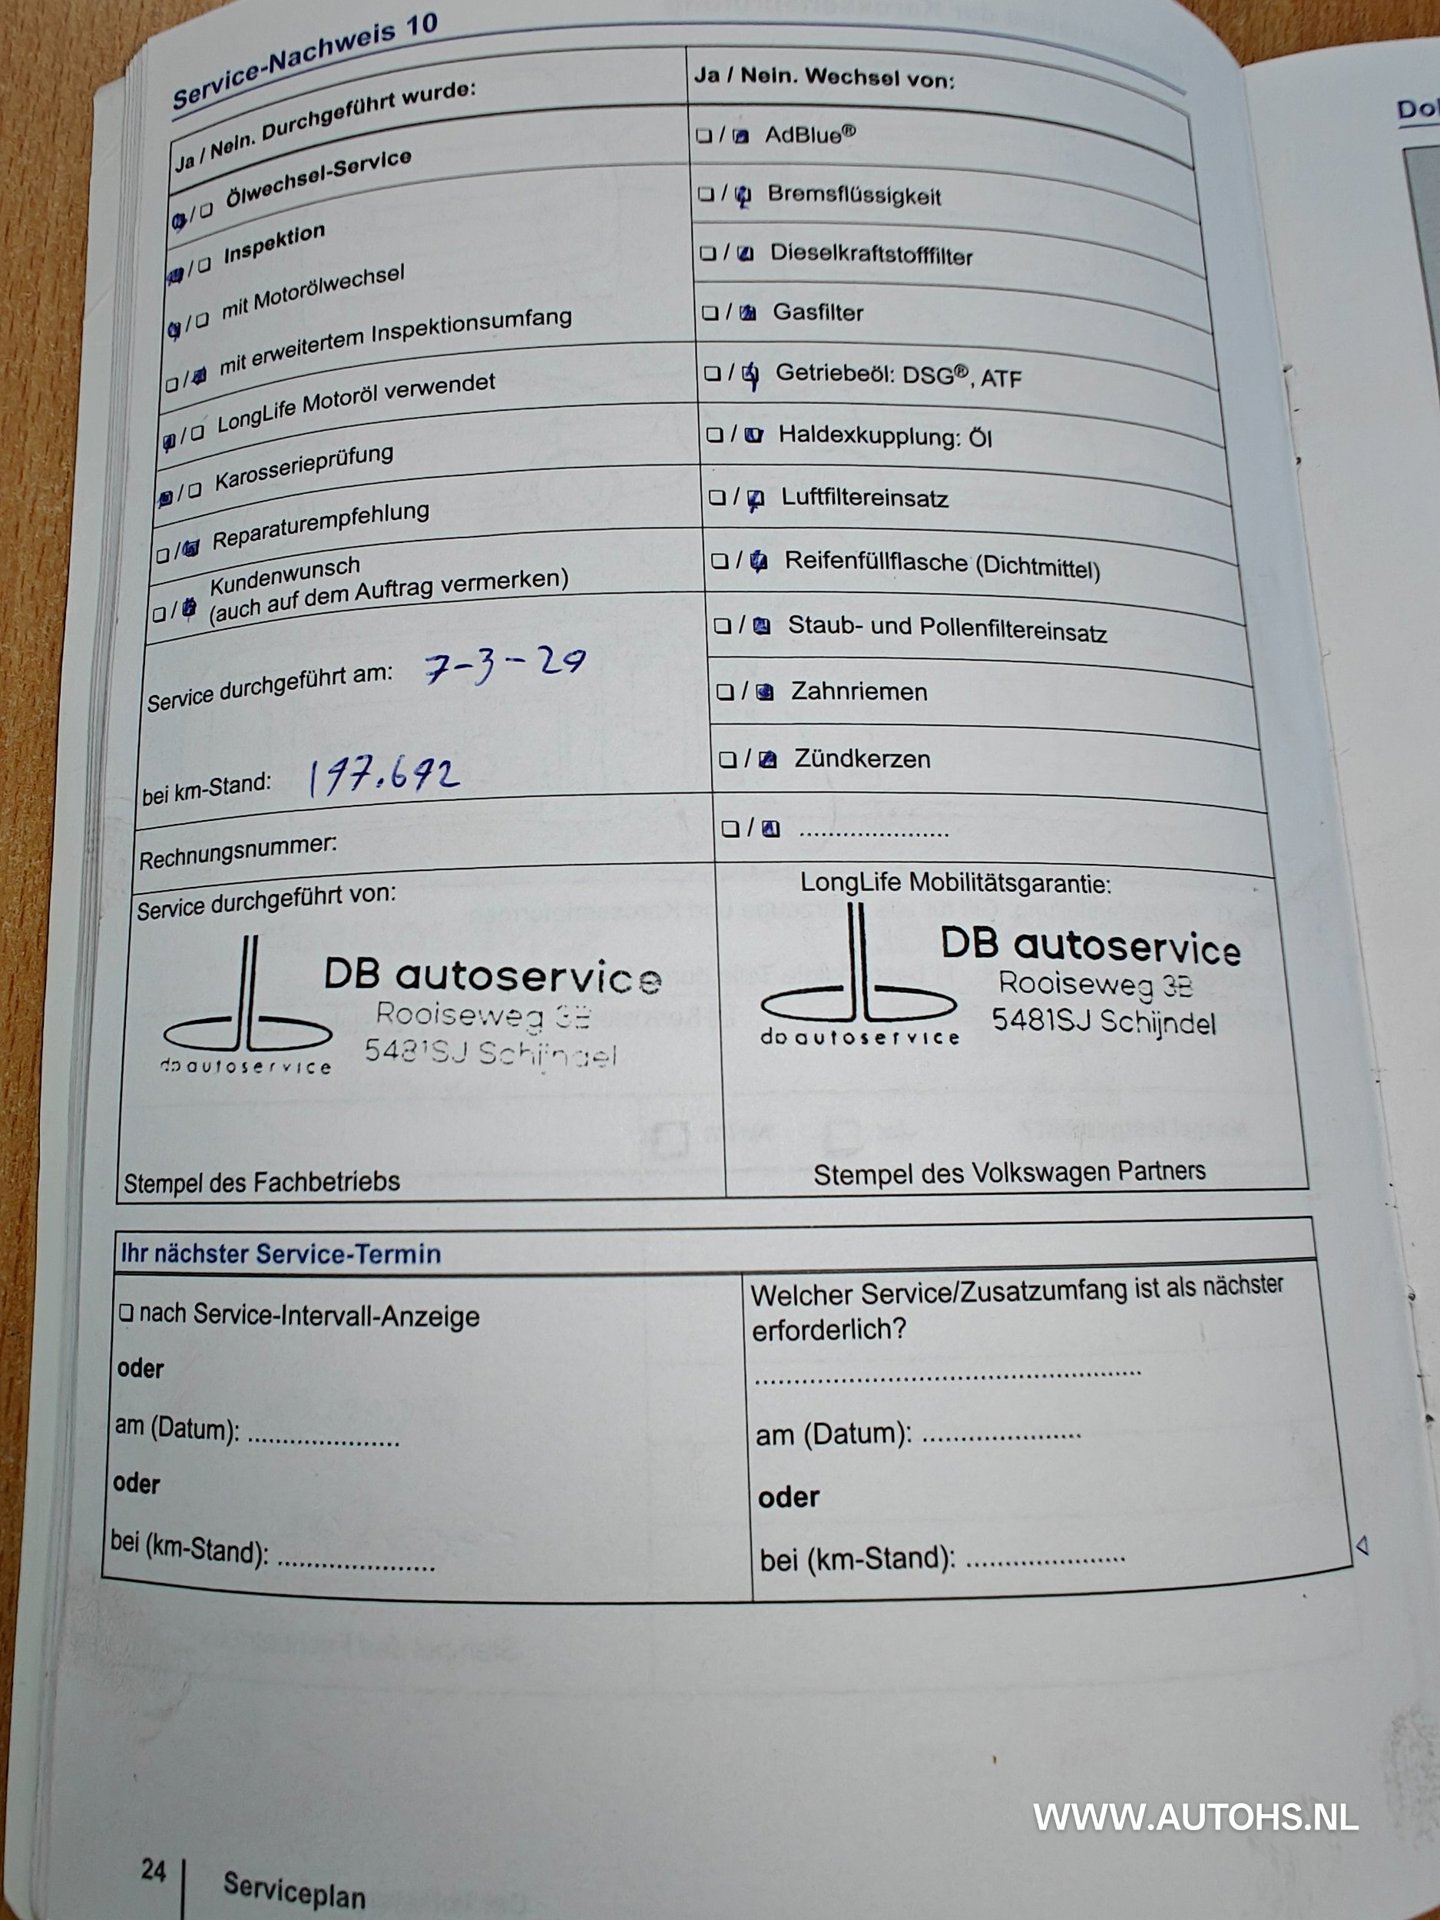 Service-Nachweis 10
Ja / Nein. Durchgeführt wurde:
❏ / ❏ Ölwechsel-Service
❏ / ❏ Inspektion
❏ / ❏ mit Motorölwechsel
❏ / ❏ mit erweitertem Inspektionsumfang
❏ / ❏ LongLife Motoröl verwendet
❏ / ❏ Karosserieprüfung
❏ / ❏ Reparaturempfehlung
❏ / ❏ Kundenwunsch
(auch auf dem Auftrag vermerken)
Service durchgeführt am: 7-3-29
bei km-Stand: 197.692
Rechnungsnummer:
Service durchgeführt von:
DB autoservice
Rooiseweg 3B
5481SJ Schijndel
db autoservice
Stempel des Fachbetriebs
Ja / Nein. Wechsel von:
❏ / ❏ AdBlue®
❏ / ❏ Bremsflüssigkeit
❏ / ❏ Dieselkraftstofffilter
❏ / ❏ Gasfilter
❏ / ❏ Getriebeöl: DSG®, ATF
❏ / ❏ Haldexkupplung: Öl
❏ / ❏ Luftfiltereinsatz
❏ / ❏ Reifenfüllflasche (Dichtmittel)
❏ / ❏ Staub- und Pollenfiltereinsatz
❏ / ❏ Zahnriemen
❏ / ❏ Zündkerzen
❏ / ❏ .....................
LongLife Mobilitätsgarantie:
DB autoservice
Rooiseweg 3B
5481SJ Schijndel
db autoservice
Stempel des Volkswagen Partners
Ihr nächster Service-Termin
❏ nach Service-Intervall-Anzeige
oder
am (Datum): .....................
oder
bei (km-Stand): .....................
Welcher Service/Zusatzumfang ist als nächster
erforderlich?
.....................................................
am (Datum): .....................
oder
bei (km-Stand): .....................
24
Serviceplan
WWW.AUTOHS.NL